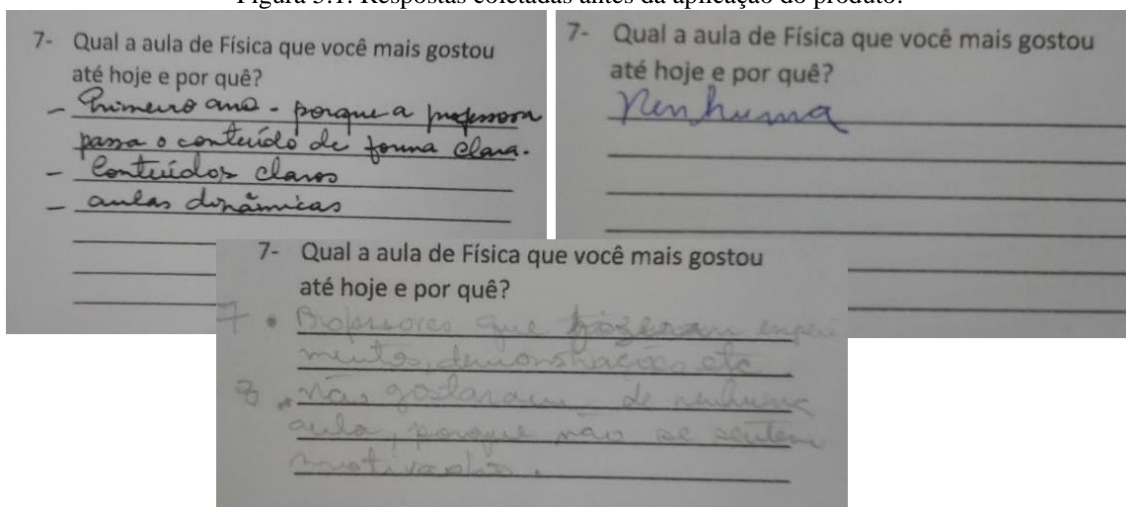 Figura 3.1: Respostas coletadas antes da aplicação do produto.
7- Qual a aula de Física que você mais gostou
até hoje e por quê?
- Primeiro ano - porque a professora
passa o conteúdo de forma clara.
- Conteúdos claros
- aulas dinâmicas
7- Qual a aula de Física que você mais gostou
até hoje e por quê?
Nenhuma
7- Qual a aula de Física que você mais gostou
até hoje e por quê?
7 • Professores que fizeram experi
mentos, demonstrações, etc.
8 • não gostaram de nenhuma
aula, porque não se sentem
motivados.